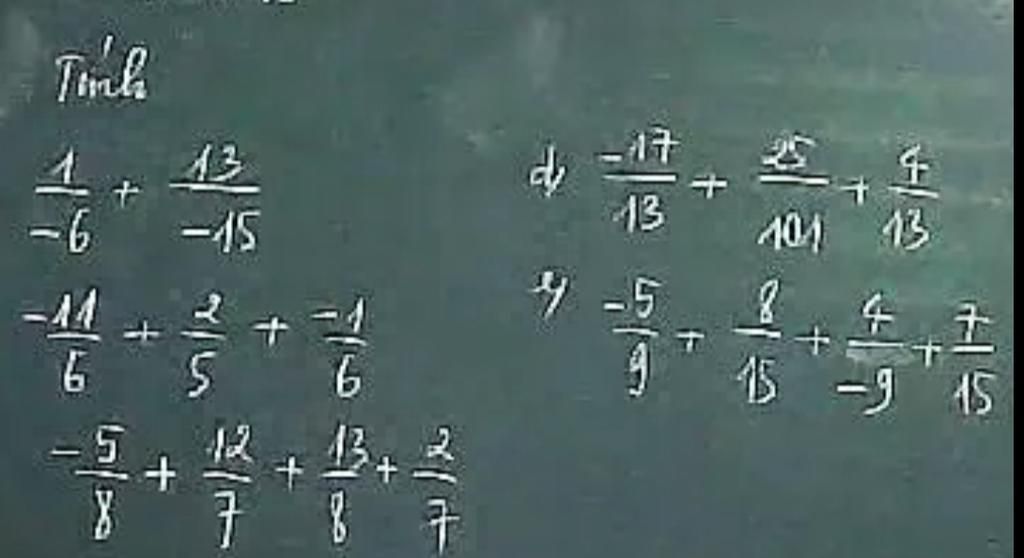 Tính
1/-6 + 13/-15
-11/6 + 2/5 + -1/6
-5/8 + 12/7 + 13/8 + 2/7
d) -17/13 + 25/101 + 4/13
e) -5/9 + 8/15 + 4/-9 + 7/15